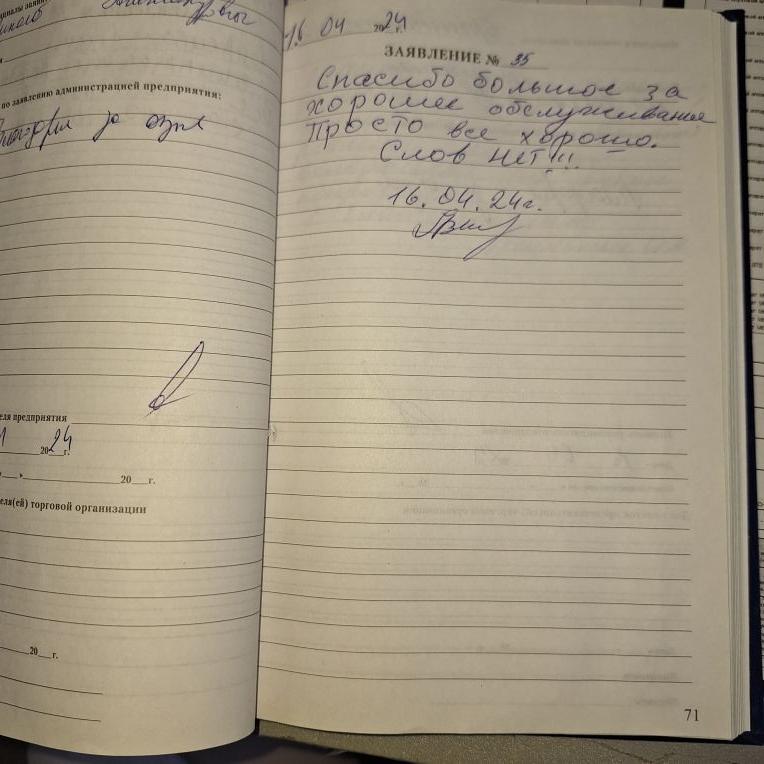 по заявлению администрацией предприятия:
за
предприятия
2024г.
20 г.
торговой организации
20 г.
16 04 2024г.
ЗАЯВЛЕНИЕ № 35
Спасибо большое за
хорошее обслуживание
Просто все хорошо.
Слов нет!!!
16.04.24г.
71